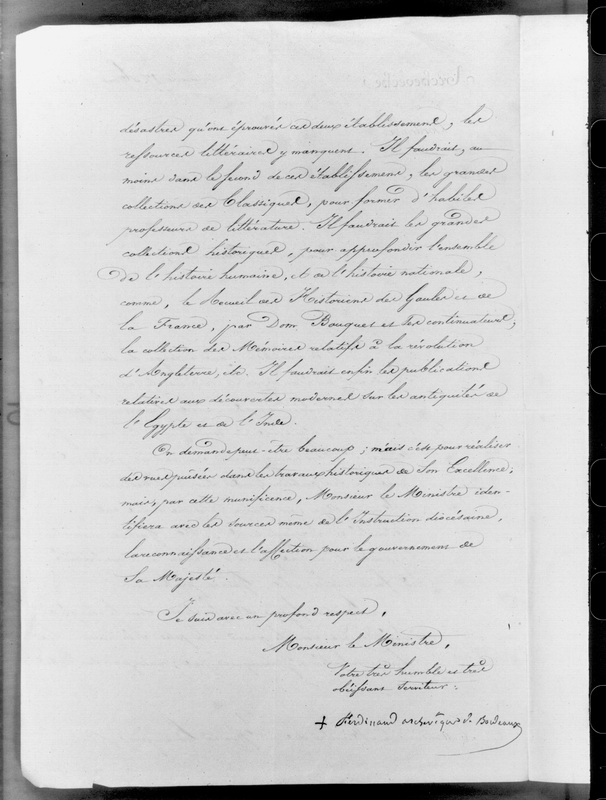 désastres qu'ont éprouvés ces deux établissements, les
ressources littéraires y manquent. Il faudrait, au
moins dans le second de ces établissements, les grandes
collections des Classiques, pour former d'habiles
professeurs de littérature. Il faudrait les grandes
collections historiques, pour approfondir l'ensemble
de l'histoire humaine, et de l'histoire nationale,
comme, le Recueil des Historiens des Gaules et de
la France, par Dom Bouques et ses continuateurs,
la collection des Mémoires relatifs à la révolution
d'Angleterre, etc. Il faudrait enfin les publications
relatives aux découvertes modernes sur les antiquités de
l'Egypte et de l'Inde.
On demande peut-être beaucoup; mais c'est pour réaliser
des vues puisées dans les travaux historiques de Son Excellence;
mais, par cette munificence, Monsieur le Ministre iden-
tifiera avec les sources même de l'Instruction diocésaine,
la reconnaissance et l'affection pour le gouvernement de
Sa Majesté.
Je suis avec un profond respect,
Monsieur le Ministre,
Votre très humble et très
obéissant Serviteur.
+ Ferdinand archevêque de Bordeaux